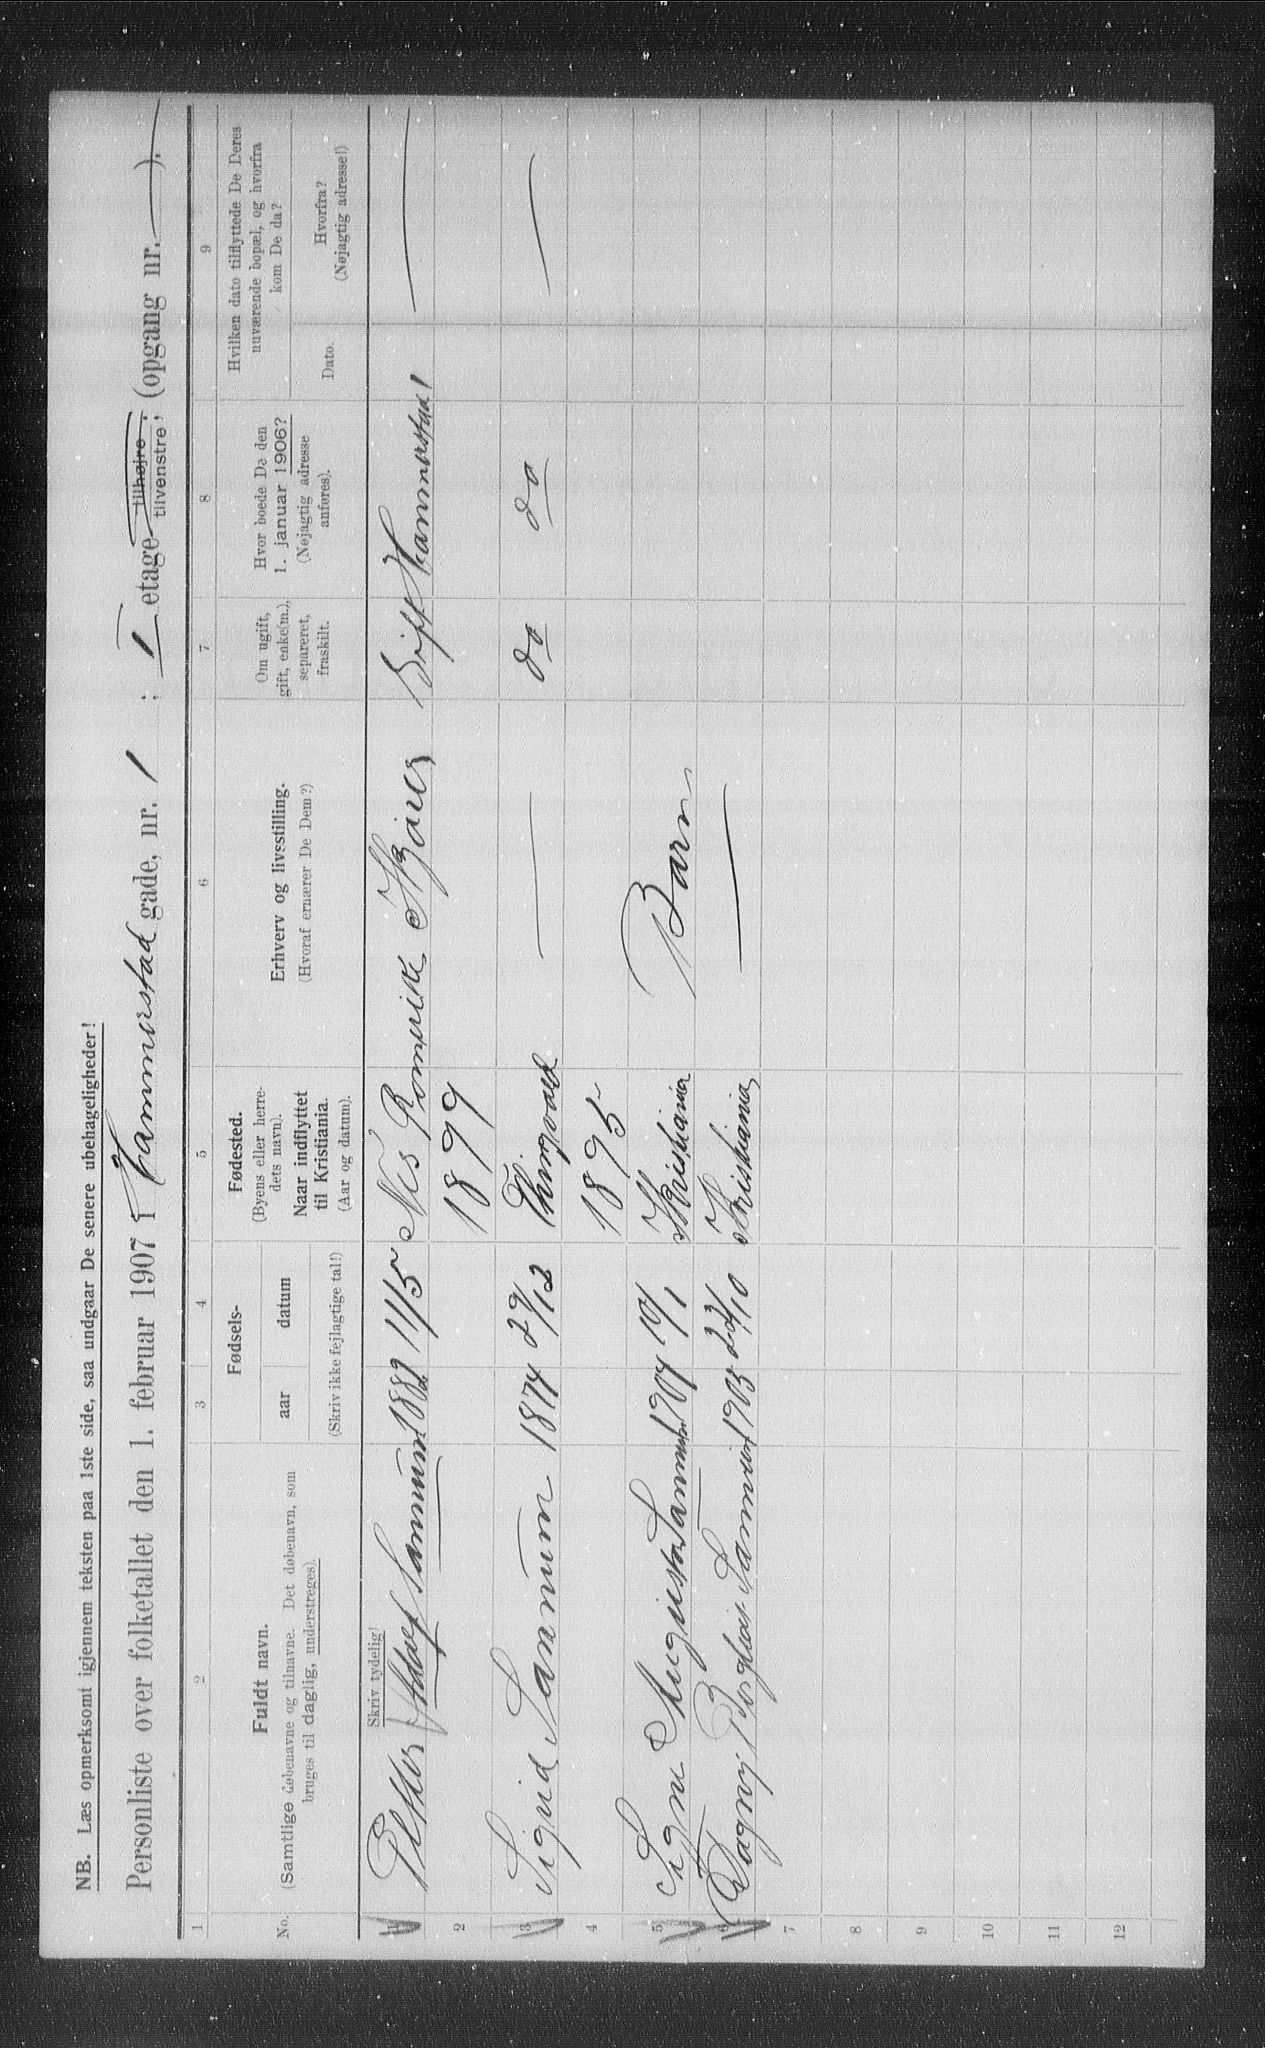 NB. Læs opmerksomt igjennem teksten paa 1ste side, saa undgaar De senere ubehageligheder!
Personliste over folketallet den 1. februar 1907 i Hammerstad gade, nr. 1 ; I etage tilhøjre tilvenstre; (opgang nr. — ).
1 2 3 4 5 6 7 8 9
No.
Fuldt navn.
(Samtlige døbenavne og tilnavne. Det døbenavn, som
bruges til daglig, understreges).
Fødsels-
aar datum
(Skriv ikke fejlagtige tal!)
Fødested.
(Byens eller herre-
dets navn).
Naar indflyttet
til Kristiania.
(Aar og datum).
Erhverv og livsstilling.
(Hvoraf ernærer De Dem?)
Om ugift,
gift, enke(m.),
separeret,
fraskilt.
Hvor boede De den
1. januar 1906?
(Nøjagtig adresse
anføres).
Hvilken dato tilflyttede De Deres
nuværende bopæl, og hvorfra
kom De da?
Dato.
Hvorfra?
(Nøjagtig adresse!)
Skriv tydelig!
1 Petter Adolf 11/5 Nes Romerike Gift Hammerstad 1 —
2 1899
3 Sigrid 1874 29/12 Thingvold — do do —
4 1895
5 Signe Augusta 19/1 Kristiania Barn
6 Dagny Borghild 1903 22/10 Kristiania —
7
8
9
10
11
12